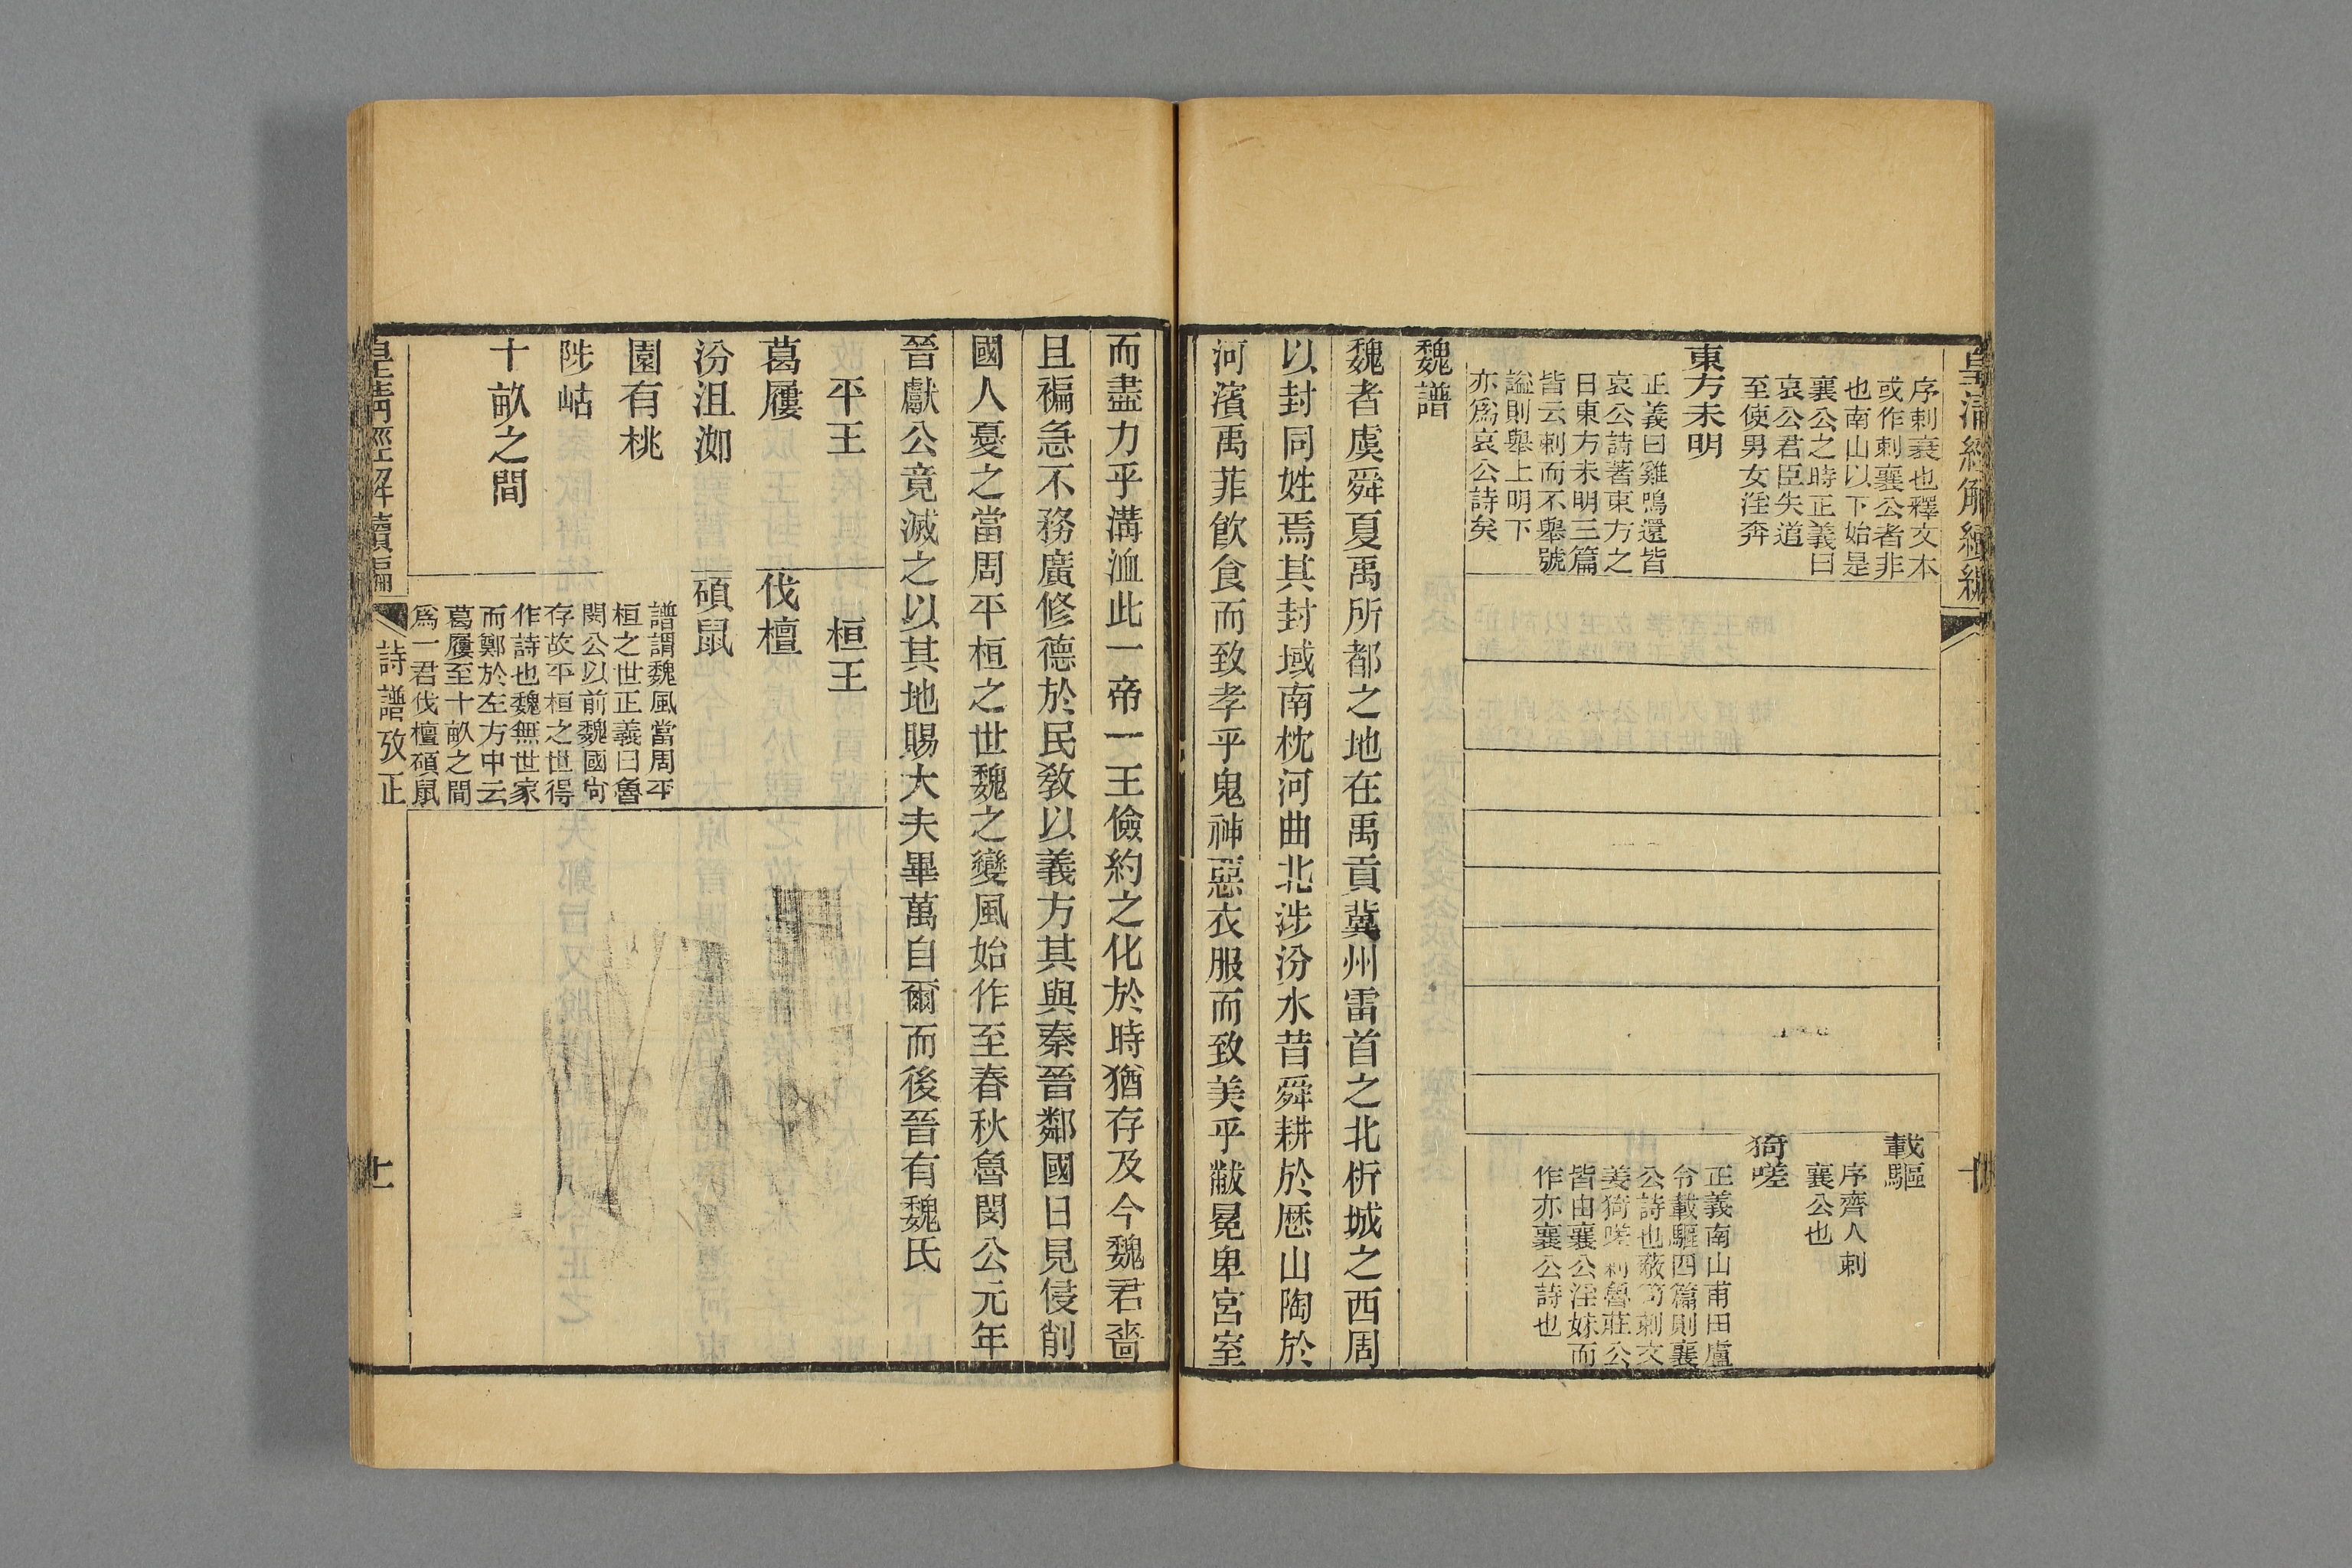 皇清經解續編
序刺衰也釋文本
或作刺襄公者非
也南山以下始是
襄公之時正義曰
哀公君臣失道
至使男女淫奔
東方未明
正義曰雞鳴還皆
哀公詩著東方之
日東方未明三篇
皆云刺而不舉號
謚則舉上明下
亦爲哀公詩矣
載驅
序齊人刺
襄公也
猗嗟
正義南山甫田盧
令載驅四篇則襄
公詩也敝笱刺文
姜猗嗟刺魯莊公
皆由襄公淫妹而
作亦襄公詩也
魏譜
魏者虞舜夏禹所都之地在禹貢冀州雷首之北析城之西周
以封同姓焉其封域南枕河曲北涉汾水昔舜耕於歷山陶於
河濱禹菲飲食而致孝乎鬼神惡衣服而致美乎黻冕卑宮室
而盡力乎溝洫此一帝一王儉約之化於時猶存及今魏君嗇
且褊急不務廣修德於民敎以義方其與秦晉鄰國日見侵削
國人憂之當周平桓之世魏之變風始作至春秋魯閔公元年
晉獻公竟滅之以其地賜大夫畢萬自爾而後晉有魏氏
平王
桓王
葛屨
伐檀
汾沮洳
碩鼠
園有桃
陟岵
十畝之間
譜謂魏風當周平
桓之世正義曰魯
閔公以前魏國尙
存故平桓之世得
作詩也魏無世家
而鄭於左方中云
葛屨至十畝之間
爲一君伐檀碩鼠
皇淸經解續編
詩譜攷正
十一